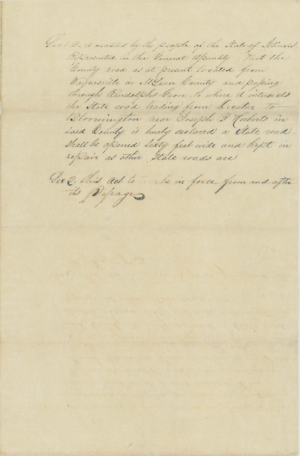 Sec 1. Be it enacted by the people of the State of Illinois
Represented in the General Assembly That the
County road as at present located from
in McLean County and passing
through Randolphs Grove to where it intersects
the State road leading from Decatur to
Bloomington near Joseph in
said County is hereby declared a State road
shall be opened Sixty feet wide and kept in
repair as other State roads are
Sec 2 This Act to be in force from and after
its passage